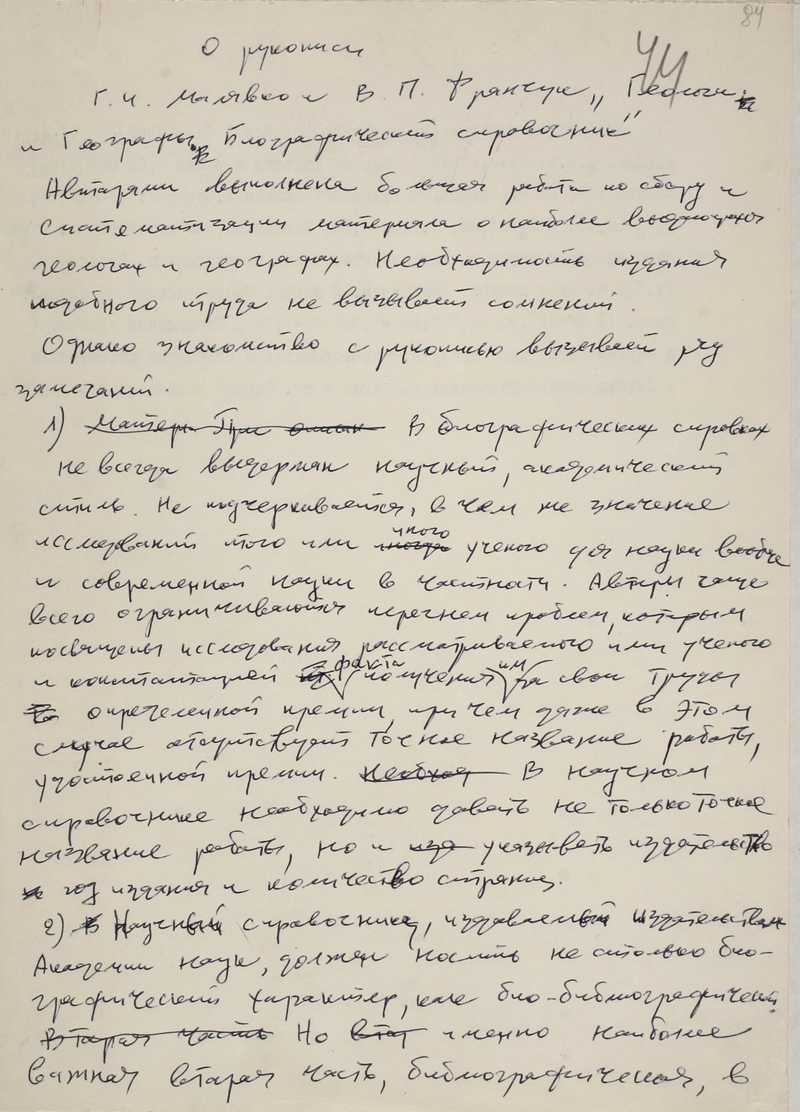 84
44
О рукописи
Г. И. Малявко и В. П. Франчук „Геологи
и Географы. Биографический справочник"
Авторами выполнена большая работа по сбору и
систематизации материала о наиболее выдающихся
геологах и географах. Необходимость издания
подобного труда не вызывает сомнений.
Однако знакомство с рукописью вызывает ряд
замечаний.
1) Матери При опис В биографических справках
не всегда выдержан научный, академический
стиль. Не подчеркивается, в чем же значение
исследований того или иного ученого для науки вообще
и современной науки в частности. Авторы чаще
всего ограничиваются перечнем проблем, которым
посвящены исследования рассматриваемого ими ученого
и констатацией факта получения им за свои труды
определенной премии, при чем даже в этом
случае отсутствует точное название работы,
удостоенной премии. Необход В научном
справочнике необходимо давать не только точное
название работы, но и изд указывать издательство
год издания и количество страниц.
2) В Научный справочник, издаваемый издательством
Академии наук, должен носить не столько био-
графический характер, как био-библиографический.
Вторая часть Но втор именно наиболее
важная вторая часть, библиографическая, в